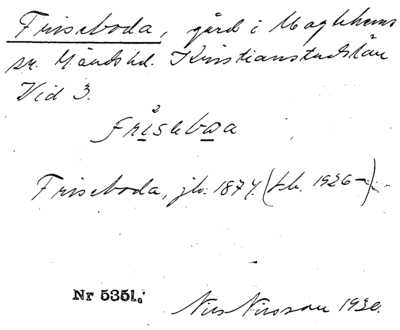 Friseboda, gård i Maglehems
sn. Gärds hd. Kristianstads län
Vid 3.
friseboa
Friseboda, jb. 1877 (sb. 1926–)
Nr 5351.
Nils Nilsson 1930.